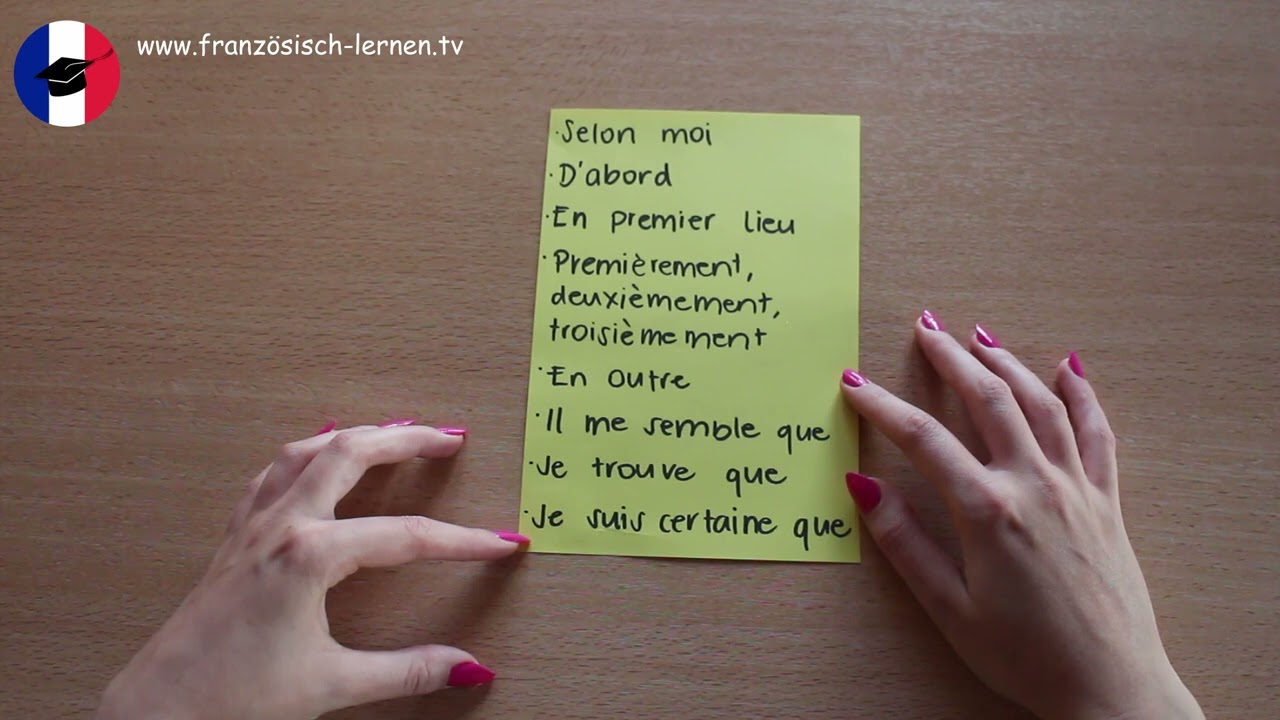 www.französisch-lernen.tv
·Selon moi
·D'abord
·En premier lieu
·Premièrement,
deuxièmement,
troisièmement
·En outre
·Il me semble que
·Je trouve que
·Je suis certaine que